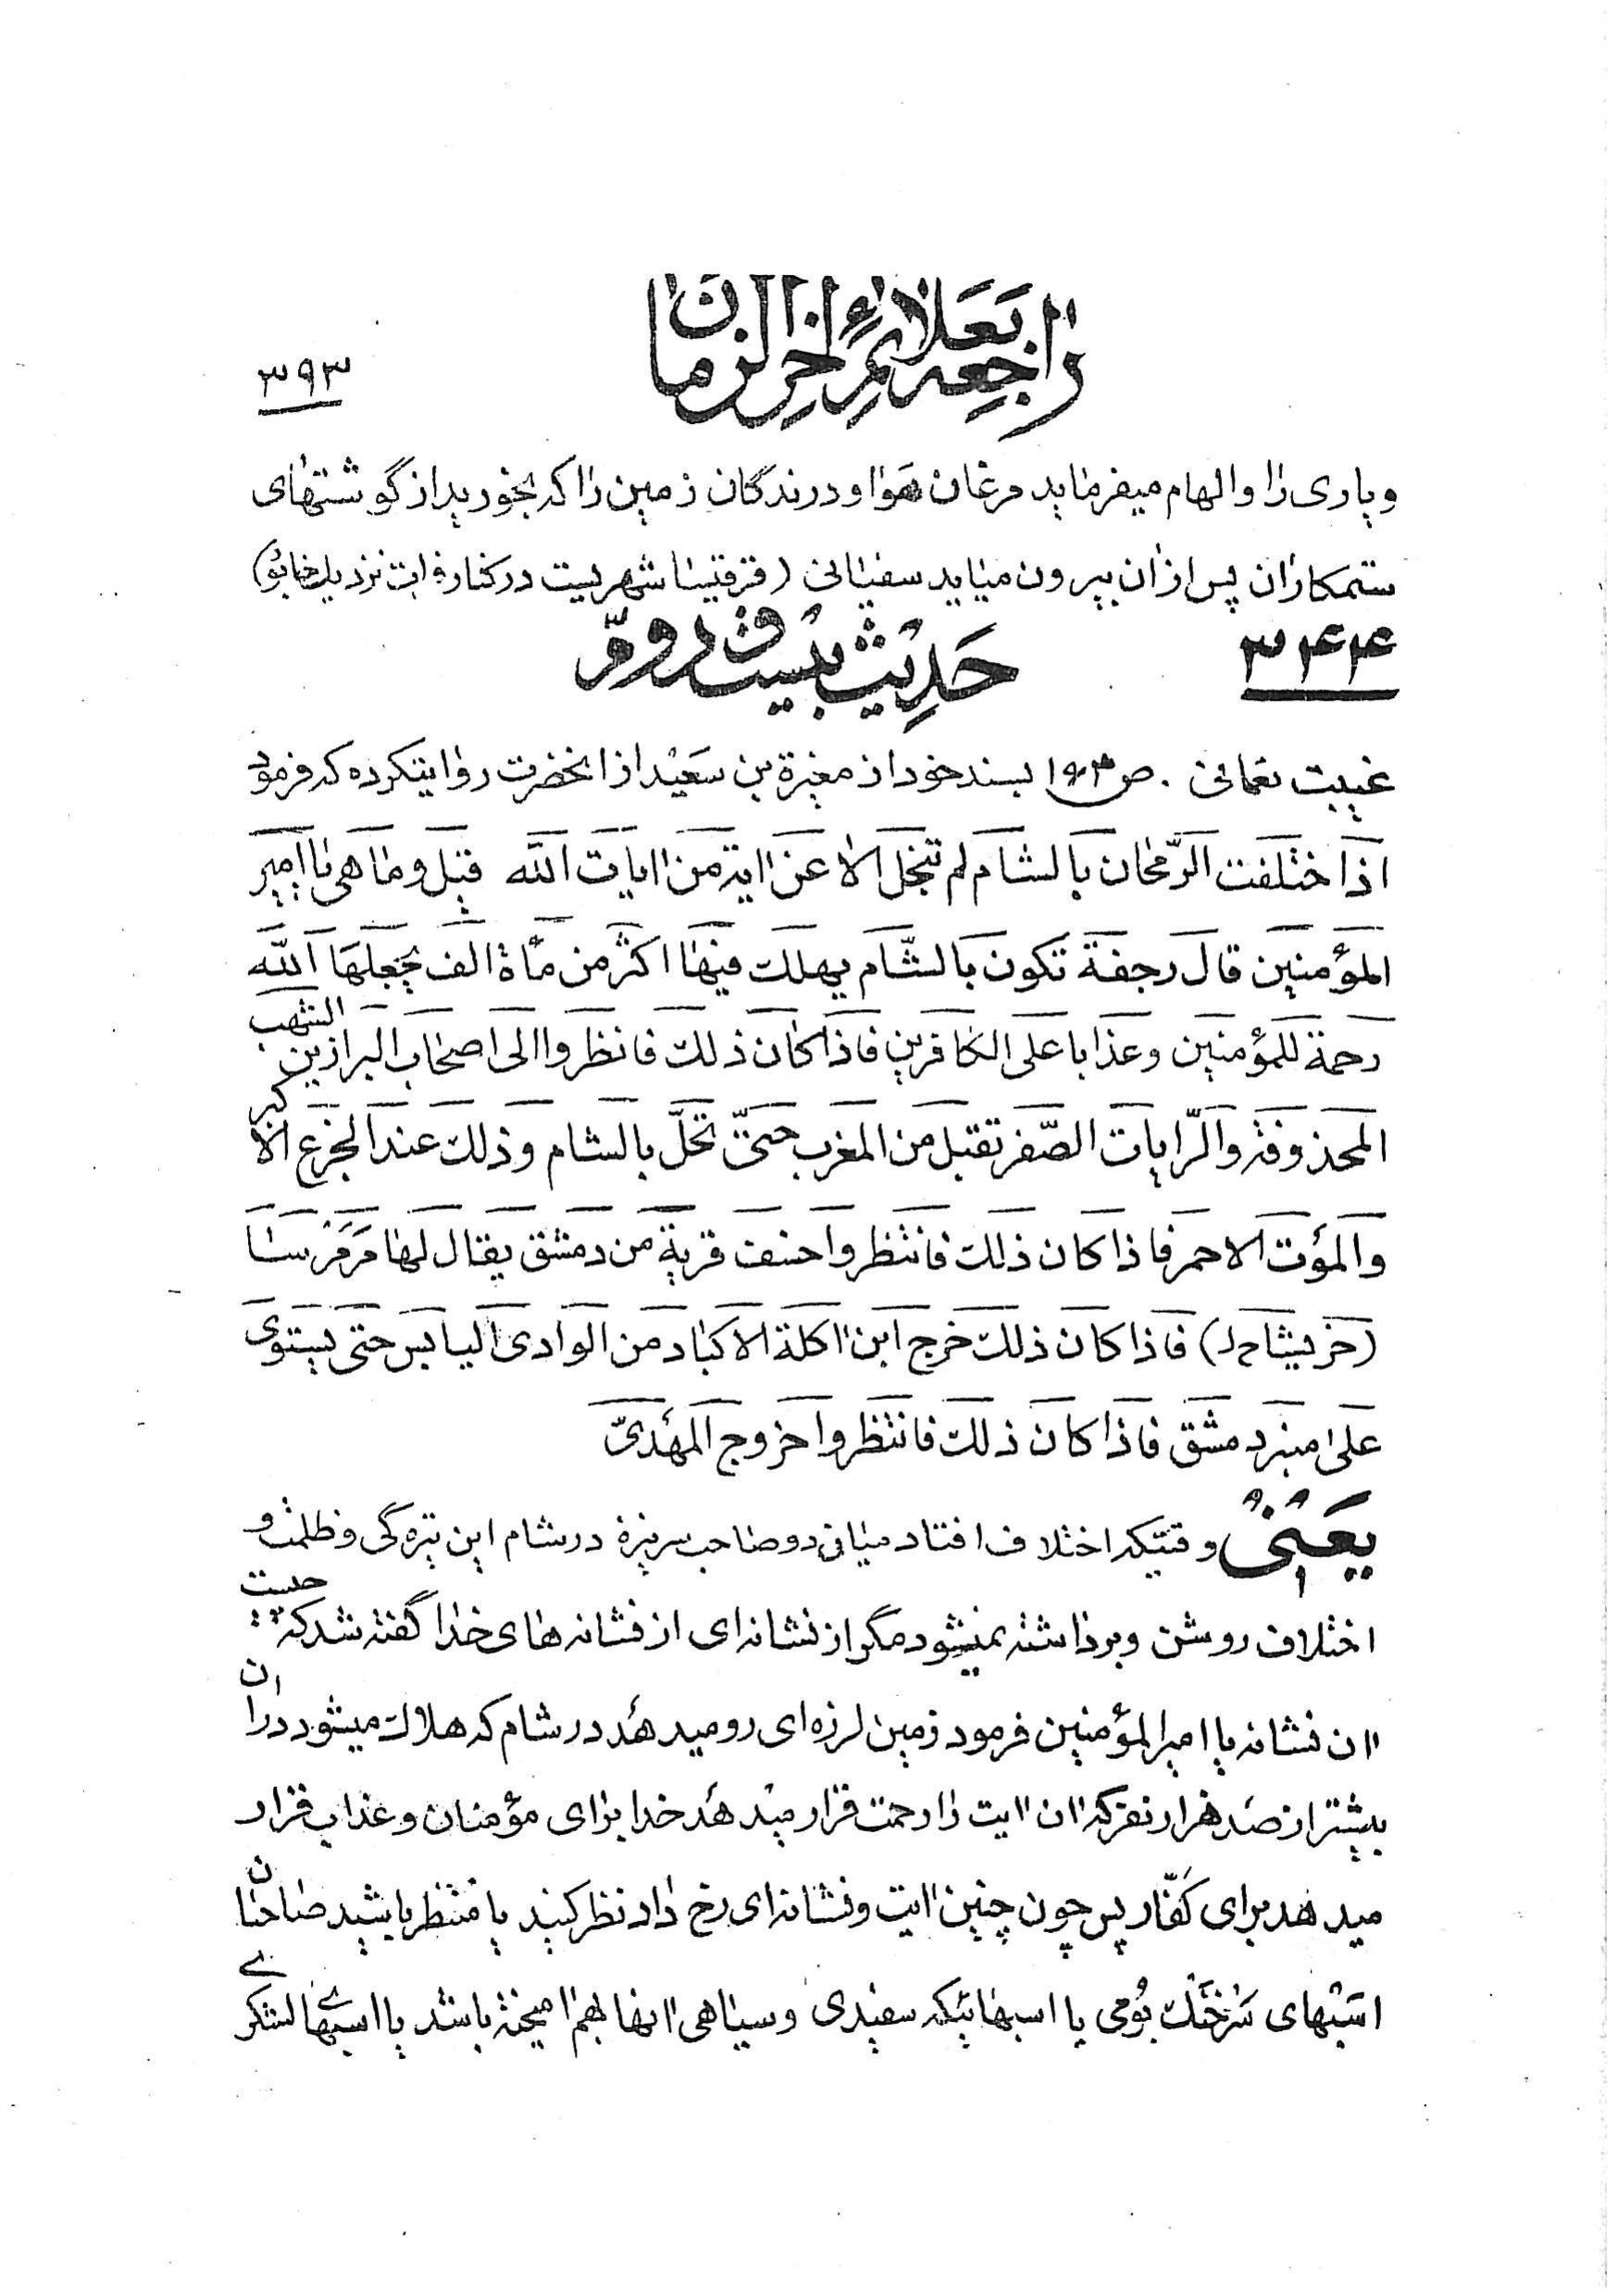 راجعه بعلائم اخر الزمان
۳۹۳
و یاری را و الهام میفرماید مرغان هوا و درندگان زمین را که بخورید از گوشتهای
ستمکاران پس از ان بیرون میاید سفیانی (قرقیسا شهریست در کنار فرات نزدیک خابور)
۳۴۴
حدیث بیست و دوم
غیبت نعمانی . ص ۱۶۳ بسند خود از مغیرة بن سعید از انحضرت روایتکرده که فرمود
اذا اختلفت الرّمحان بالشام لم تنجل الا عن اایة من اایات الله قیل و ما هی یا امیر
المؤمنین قال رجفة تکون بالشّام یهلک فیها اکثر من مأة الف یجعلها الله
رحمة للمؤمنین و عذابا علی الکافرین فاذا کان ذلک فانظروا الی اصحاب البراذین الشهب
المحذوفة و الرّایات الصّفر تقبل من المغرب حتّی تحلّ بالشام و ذلک عند الجزع الاکبر
و المؤت الاحمر فاذا کان ذلک فانتظروا خسف قریة من دمشق یقال لها مرمرسا
(خریشا خ‌ل) فاذا کان ذلک خرج ابن ااکلة الاکباد من الوادی الیابس حتی یستوی
علی منبر دمشق فاذا کان ذلک فانتظروا خروج المهدیّ
یعنی وقتیکه اختلاف افتاد میانه دو صاحب سرنیزه در شام این تیره گی و ظلمت و
اختلاف روشن و برداشته نمیشود مگر از نشانه ای از نشانه های خدا گفته شد که چیست
اان نشانه یا امیر المؤمنین فرمود زمین لرزه ای رو میدهد در شام که هلاک میشود در اان
بیشتر از صد هزار نفر که اان اایت را رحمت قرار میدهد خدا برای مؤمنان و عذاب قرار
میدهد برای کفّار پس چون چنین اایت و نشانه ای رخ داد نظر کنید یا منتظر باشید صاحبان
اسبهای سرخنک بومی یا اسبهائیکه سفیدی و سیاهی اانها بهم اامیخته باشد یا اسبهای لشکری